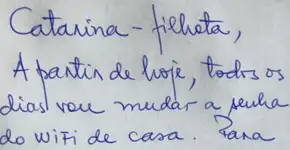 Catarina - filhota,
A partir de hoje, todos os
dias vou mudar a senha
do WiFi de casa. Para